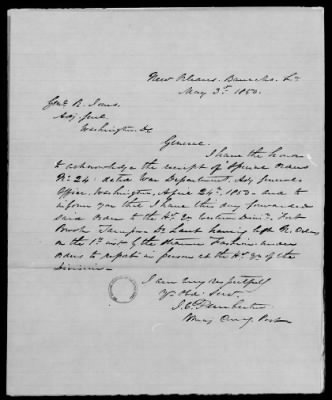 New Orleans Barracks, La
May 3d 1850.
Genl R. Jones
Adj. Genl
Washington, Dc
General
I have the honor
to acknowledge the receipt of Special Orders
No 24. dated War Department, Adj. Generals
Office, Washington, April 24th, 1850 - and to
inform you that I have this day forwarded
said order to the Hd. Qrs Western Divisn. Fort
Brook Tampa Lieut having left N. Orleans
on the 1st inst by the Steamer Fashion under
orders to report in person at the Hd Qrs of the
Division.
I am very respectfully
Yr Obt. Servt.
Maj Comg Post